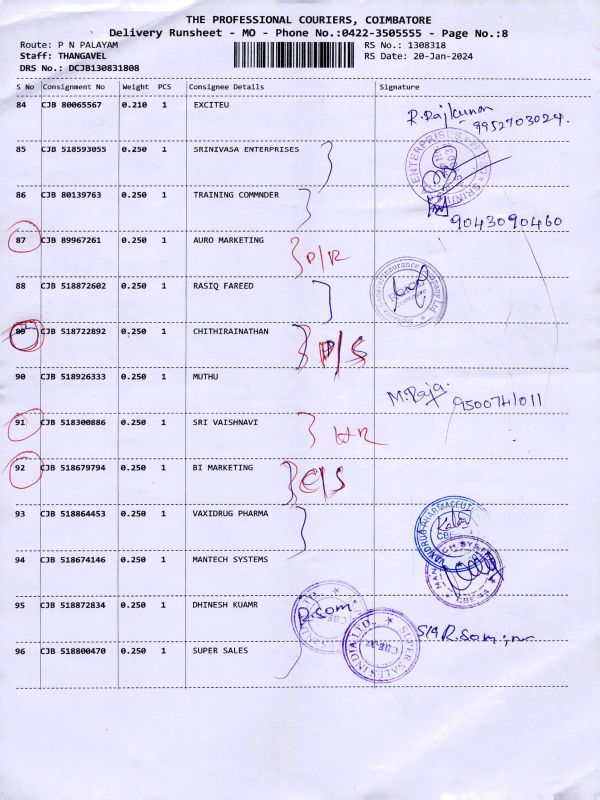 THE PROFESSIONAL COURIERS, COIMBATORE
Delivery Runsheet - MO - Phone No.:0422-3505555 - Page No.:8
Route: P N PALAYAM RS No.: 1308318
Staff: THANGAVEL RS Date: 20-Jan-2024
DRS No.: DCJB130831808
S No Consignment No Weight PCS Consignee Details Signature
84 CJB 80065567 0.210 1 EXCITEU R. Rajkumar
9952703024.
85 CJB 518593055 0.250 1 SRINIVASA ENTERPRISES
86 CJB 80139763 0.250 1 TRAINING COMMNDER
9043090460
87 CJB 89967261 0.250 1 AURO MARKETING D/R
88 CJB 518872602 0.250 1 RASIQ FAREED
89 CJB 518722892 0.250 1 CHITHIRAINATHAN P/S
90 CJB 518926333 0.250 1 MUTHU M. Raja. 9500741011
91 CJB 518300886 0.250 1 SRI VAISHNAVI
92 CJB 518679794 0.250 1 BI MARKETING C/S
93 CJB 518864453 0.250 1 VAXIDRUG PHARMA
VAXIDRUG PHARMACEUTI
94 CJB 518674146 0.250 1 MANTECH SYSTEMS
MANTECH SYSTEMS
95 CJB 518872834 0.250 1 DHINESH KUAMR R. Som.
96 CJB 518800470 0.250 1 SUPER SALES
SUPER SALES INDIA LTD. R. Som